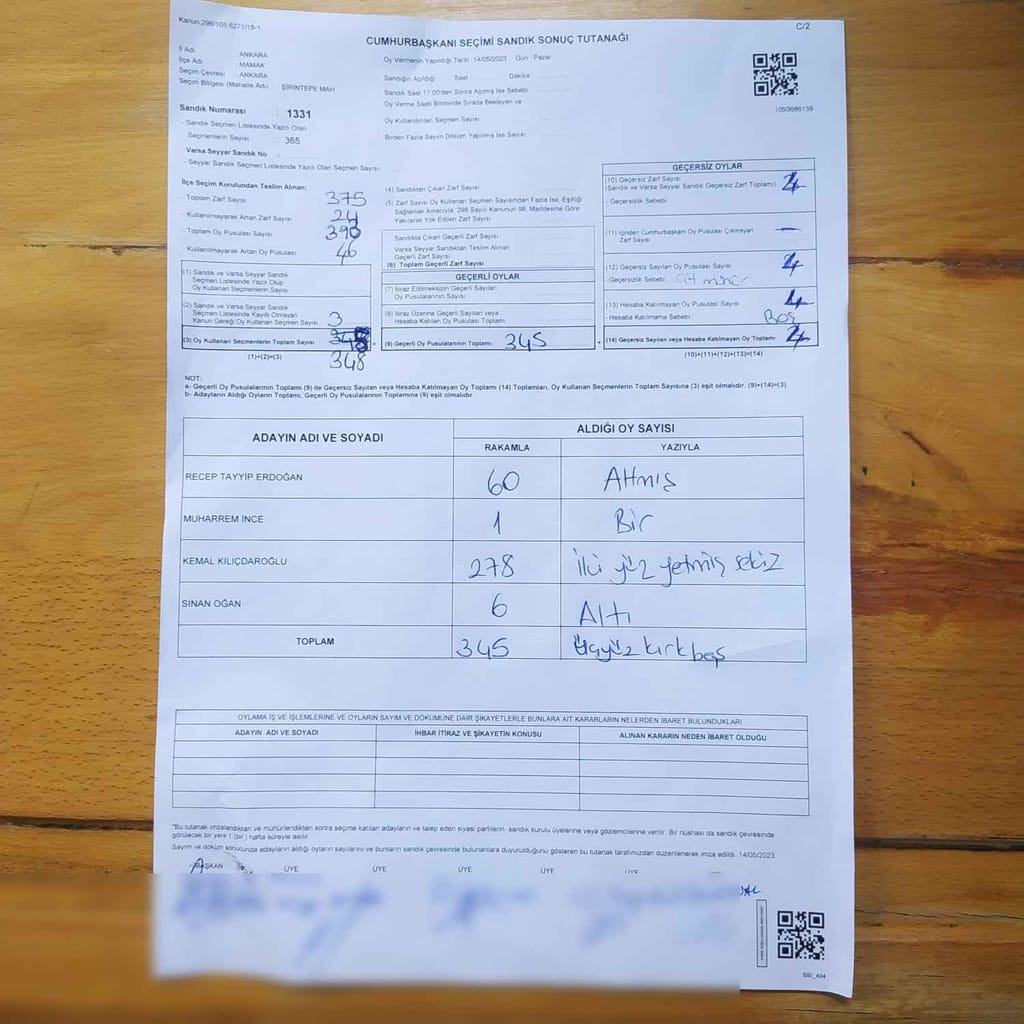 Kanun:298/105 6271/18-1
C/2
CUMHURBAŞKANI SEÇİMİ SANDIK SONUÇ TUTANAĞI
İl Adı : ANKARA
İlçe Adı : MAMAK
Seçim Çevresi : ANKARA
Seçim Bölgesi (Mahalle Adı) : ŞİRİNTEPE MAH
Sandık Numarası : 1331
- Sandık Seçmen Listesinde Yazılı Olan
Seçmenlerin Sayısı : 365
Varsa Seyyar Sandık No :
- Seyyar Sandık Seçmen Listesinde Yazılı Olan Seçmen Sayısı:
Oy Vermenin Yapıldığı Tarih : 14/05/2023 Gün : Pazar
Sandığın Açıldığı Saat Dakika
Sandık Saat 17:00'den Sonra Açılmış İse Sebebi
Oy Verme Saati Bitiminde Sırada Bekleyen ve
Oy Kullandırılan Seçmen Sayısı
Birden Fazla Sayım Döküm Yapılmış İse Sayısı
1093686139
İlçe Seçim Kurulundan Teslim Alınan;
- Toplam Zarf Sayısı 375
- Kullanılmayarak Artan Zarf Sayısı 24
- Toplam Oy Pusulası Sayısı 390
- Kullanılmayarak Artan Oy Pusulası 46
(1) Sandık ve Varsa Seyyar Sandık
Seçmen Listesinde Yazılı Olup
Oy Kullanan Seçmenlerin Sayısı
(2) Sandık ve Varsa Seyyar Sandık
Seçmen Listesinde Kayıtlı Olmayan
Kanun Gereği Oy Kullanan Seçmen Sayısı 3
(3) Oy Kullanan Seçmenlerin Toplam Sayısı
(1)+(2)=(3) 348
(4) Sandıktan Çıkan Zarf Sayısı
(5) Zarf Sayısı Oy Kullanan Seçmen Sayısından Fazla İse, Eşitliği
Sağlamak Amacıyla; 298 Sayılı Kanunun 98. Maddesine Göre
Yakılarak Yok Edilen Zarf Sayısı
Sandıkta Çıkan Geçerli Zarf Sayısı
Varsa Seyyar Sandıktan Teslim Alınan
Geçerli Zarf Sayısı
(6) Toplam Geçerli Zarf Sayısı
GEÇERLİ OYLAR
(7) İtiraz Edilmeksizin Geçerli Sayılan
Oy Pusulalarının Sayısı
(8) İtiraz Üzerine Geçerli Sayılan veya
Hesaba Katılan Oy Pusulası Toplamı
(9) Geçerli Oy Pusulalarının Toplamı 345
GEÇERSİZ OYLAR
(10) Geçersiz Zarf Sayısı
(Sandık ve Varsa Seyyar Sandık Geçersiz Zarf Toplamı)
- Geçersizlik Sebebi
(11) İçinden Cumhurbaşkanı Oy Pusulası Çıkmayan
Zarf Sayısı —
(12) Geçersiz Sayılan Oy Pusulası Sayısı
- Geçersizlik Sebebi
(13) Hesaba Katılmayan Oy Pusulası Sayısı
- Hesaba Katılmama Sebebi Boş
(14) Geçersiz Sayılan veya Hesaba Katılmayan Oy Toplamı
(10)+(11)+(12)+(13)=(14)
NOT:
a- Geçerli Oy Pusulalarının Toplamı (9) ile Geçersiz Sayılan veya Hesaba Katılmayan Oy Toplamı (14) Toplamları, Oy Kullanan Seçmenlerin Toplam Sayısına (3) eşit olmalıdır. (9)+(14)=(3)
b- Adayların Aldığı Oyların Toplamı, Geçerli Oy Pusulalarının Toplamına (9) eşit olmalıdır.
ADAYIN ADI VE SOYADI ALDIĞI OY SAYISI
RAKAMLA YAZIYLA
RECEP TAYYİP ERDOĞAN 60 Altmış
MUHARREM İNCE 1 Bir
KEMAL KILIÇDAROĞLU 278 İki yüz yetmiş sekiz
SİNAN OĞAN 6 Altı
TOPLAM 345 Üçyüz kırk beş
OYLAMA İŞ VE İŞLEMLERİNE VE OYLARIN SAYIM VE DÖKÜMÜNE DAİR ŞİKAYETLERLE BUNLARA AİT KARARLARIN NELERDEN İBARET BULUNDUKLARI
ADAYIN ADI VE SOYADI İHBAR İTİRAZ VE ŞİKAYETİN KONUSU ALINAN KARARIN NEDEN İBARET OLDUĞU
"Bu tutanak imzalandıktan ve mühürlendikten sonra seçime katılan adayların ve talep eden siyasi partilerin sandık kurulu üyelerine veya gözlemcilerine verilir. Bir nüshası da sandık çevresinde
görülecek bir yere 1 (bir ) hafta süreyle asılır.
Sayım ve döküm sonucunda adayların aldığı oyların sayılarını ve bunların sandık çevresinde bulunanlara duyurulduğunu gösteren bu tutanak tarafımızdan düzenlenerek imza edildi. 14/05/2023
BAŞKAN ÜYE ÜYE ÜYE ÜYE ÜYE
SSI_404